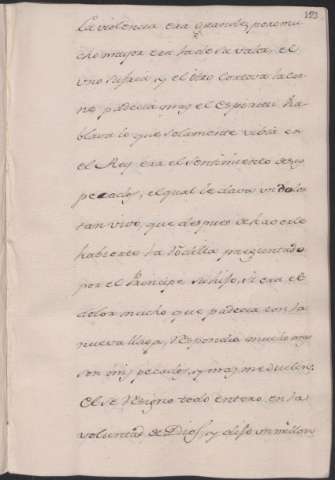 193
la violencia era grande, pero mu
cho mayor era la de su valor, el
uno sufria, y el otro cortava la car
ne padecia, mas el Espiritu ha
blava lo que solamente vibia en
el Rey era el sentimiento de sus
pecados, el qual le dava un dolor
tan vivo, que despues de haverle
habierto la rodilla preguntado
por el Principe su hijo, si era el
dolor mucho que padecia con la
nueva llaga, Respondia mucho mas
son mis pecados, y mas me duelen;
El se Resigno todo entero en la
voluntad de Dios, y dijo un millon